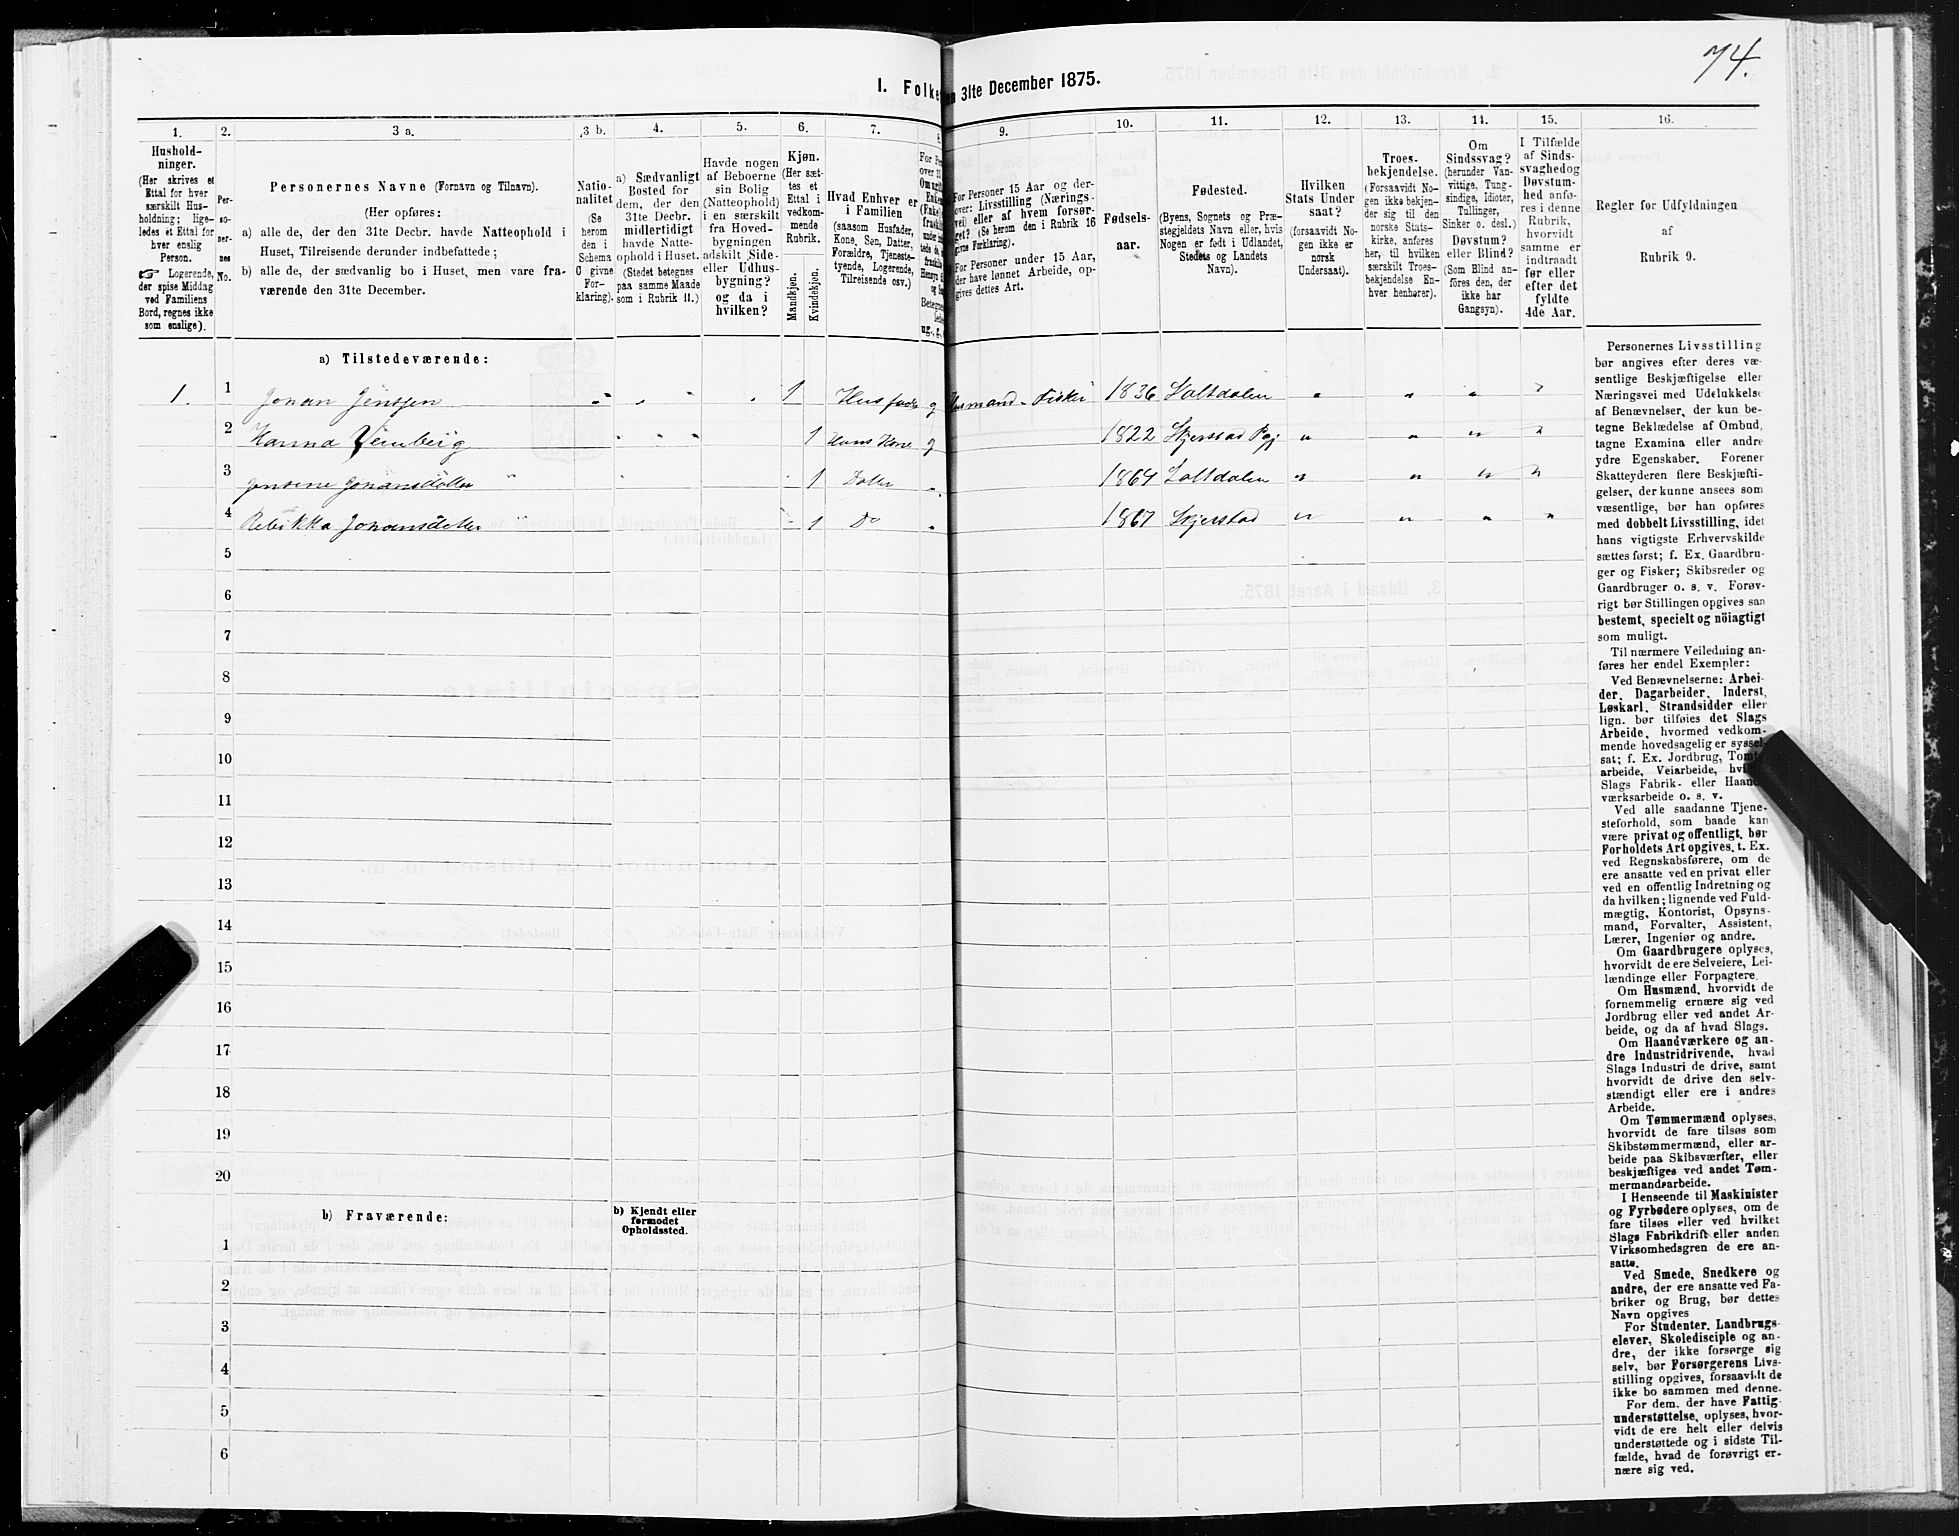 74.
1. Folke en 31te December 1875.
1. 2. 3 a. 3 b. 4. 5. 6. 7. 8. 9. 10. 11. 12. 13. 14. 15. 16.
Hushold-
ninger.
(Her skrives et
Ettal for hver
særskilt Hus-
holdning; lige-
ledes et Ettal for
hver enslig
Person.
☞ Logerende,
der spise Middag
ved Familiens
Bord, regnes ikke
som enslige).
Per-
so-
ner-
nes
No.
Personernes Navne (Fornavn og Tilnavn).
(Her opføres:
a) alle de, der den 31te Decbr. havde Natteophold i
Huset, Tilreisende derunder indbefattede;
b) alle de, der sædvanlig bo i Huset, men vare fra-
værende den 31te December.
Natio-
nalitet
(Se
herom
den i
Schema
C givne
For-
klaring).
a) Sædvanligt
Bosted for
dem, der den
31te Decbr.
midlertidigt
havde Natte-
ophold i Huset.
(Stedet betegnes
paa samme Maade
som i Rubrik 11.)
Havde nogen
af Beboerne
sin Bolig
(Natteophold)
i en særskilt
fra Hoved-
bygningen
adskilt Side-
eller Udhus-
bygning?
og da i
hvilken?
Kjøn.
(Her sæt-
tes et
Ettal i
vedkom-
mende
Rubrik.
Mandkjøn.
Kvindekjøn.
Hvad Enhver er
i Familien
(saasom Husfader,
Kone, Søn, Datter,
Forældre, Tjeneste-
tyende, Logerende,
Tilreisende osv.)
For Personer 15 Aar og der-
over: Livsstilling (Nærings-
vei) eller af hvem forsør-
get? (Se herom den i Rubrik 16
givne Forklaring).
For Personer under 15 Aar,
der have lønnet Arbeide, op-
gives dettes Art.
Fødsels-
aar.
Fødested.
(Byens, Sognets og Præ-
stegjeldets Navn eller, hvis
Nogen er født i Udlandet,
Stedets og Landets
Navn).
Hvilken
Stats Under
saat?
(forsaavidt No-
gen ikke er
norsk
Undersaat).
Troes-
bekjendelse.
(Forsaavidt No-
gen ikke bekjen-
der sig til den
norske Stats-
kirke, anføres
her, til hvilken
særskilt Troes-
bekjendelse En-
hver henhører).
Om
Sindssvag?
(herunder Van-
vittige, Tung-
sindige, Idioter,
Tullinger,
Sinker o. desl.)
Døvstum?
eller Blind?
(Som Blind an-
føres den, der
ikke har
Gangsyn).
I Tilfælde
af Sinds-
svaghed og
Døvstum-
hed anfø-
res i denne
Rubrik,
hvorvidt
samme er
indtraadt
før eller
efter det
fyldte
4de Aar.
Regler for Udfyldningen
af
Rubrik 9.
a) Tilstedeværende:
1. 1 Johan Jenssen 1 Husfader g Husmand - Fisker 1836 Saltdalen
2 Hanna 1 Hans Kone g 1822 Skjerstad Pgj
3 Jensine Johansdatter 1 Datter 1864 Saltdalen
4 Rebekka Johansdatter 1 Do 1867 Skjerstad
5
6
7
8
9
10
11
12
13
14
15
16
17
18
19
20
b) Fraværende:
b) Kjendt eller
formodet
Opholdssted.
1
2
3
4
5
6
Personernes Livsstilling
bør angives efter deres væ-
sentlige Beskjæftigelse eller
Næringsvei med Udelukkelse
af Benævnelser, der kun be-
tegne Beklædelse af Ombud,
tagne Examina eller andre
ydre Egenskaber. Forener
Skatteyderen flere Beskjæfti-
gelser, der kunne ansees som
væsentlige, bør han opføres
med dobbelt Livsstilling, idet
hans vigtigste Erhvervskilde
sættes først; f. Ex. Gaardbru-
ger og Fisker; Skibsreder og
Gaardbruger o. s. v. Forøv-
rigt bør Stillingen opgives saa
bestemt, specielt og nöiagtigt
som muligt.
Til nærmere Veiledning an-
føres her endel Exempler:
Ved Benævnelserne: Arbei-
der, Dagarbeider, Inderst,
Løskarl, Strandsidder eller
lign. bør tilføies det Slags
Arbeide, hvormed vedkom-
mende hovedsagelig er syssel-
sat; f. Ex. Jordbrug, Tomte-
arbeide, Veiarbeide, hvilket
Slags Fabrik- eller Haand-
værksarbeide o. s. v.
Ved alle saadanne Tjene-
steforhold, som baade kan
være privat og offentligt, bør
Forholdets Art opgives, t. Ex.
ved Regnskabsførere, om de
ere ansatte ved en privat eller
ved en offentlig Indretning og
da hvilken; lignende ved Fuld-
mægtig, Kontorist, Opsyns-
mand, Forvalter, Assistent,
Lærer, Ingeniør og andre.
Om Gaardbrugere oplyses,
hvorvidt de ere Selveiere, Lei-
lændinge eller Forpagtere.
Om Husmænd, hvorvidt de
fornemmelig ernære sig ved
Jordbrug eller ved andet Ar-
beide, og da af hvad Slags.
Om Haandværkere og an-
dre Industridrivende, hvad
Slags Industri de drive, samt
hvorvidt de drive den selv-
stændigt eller ere i andres
Arbeide.
Om Tømmermænd oplyses,
hvorvidt de fare tilsøs som
Skibstømmermænd, eller ar-
beide paa Skibsværfter, eller
beskjæftiges ved andet Tøm-
mermandsarbeide.
I Henseende til Maskinister
og Fyrbødere oplyses, om de
fare tilsøs eller ved hvilket
Slags Fabrikdrift eller anden
Virksomhedsgren de ere an-
satte.
Ved Smede, Snedkere og
andre, der ere ansatte ved Fa-
briker og Brug, bør dettes
Navn opgives
For Studenter, Landbrugs-
elever, Skoledisciple og an-
dre, der ikke forsørge sig
selv, bør Forsørgerens Livs-
stilling opgives, forsaavidt de
ikke bo sammen med denne.
For dem, der have Fattig-
understøttelse, oplyses, hvor-
vidt de ere helt eller delvis
understøttede og i sidste Til-
fælde, hvad de forøvrigt er-
nære sig ved.